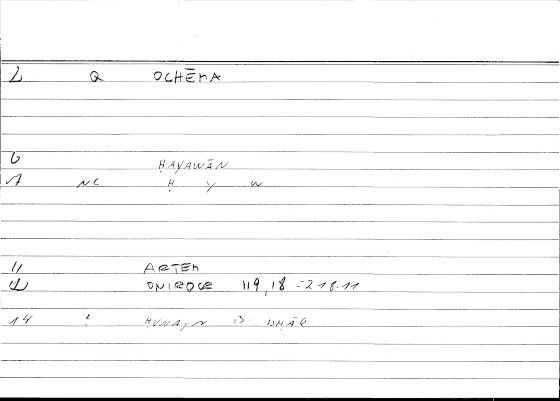 2 Q OCHĒMA
6 ḤAYAWĀN
7 NC Ḥ Y W
11 ARTEM
12 ONIROCR 119,18 = 218.11
14 : ḤUNAYN B ISḤĀQ